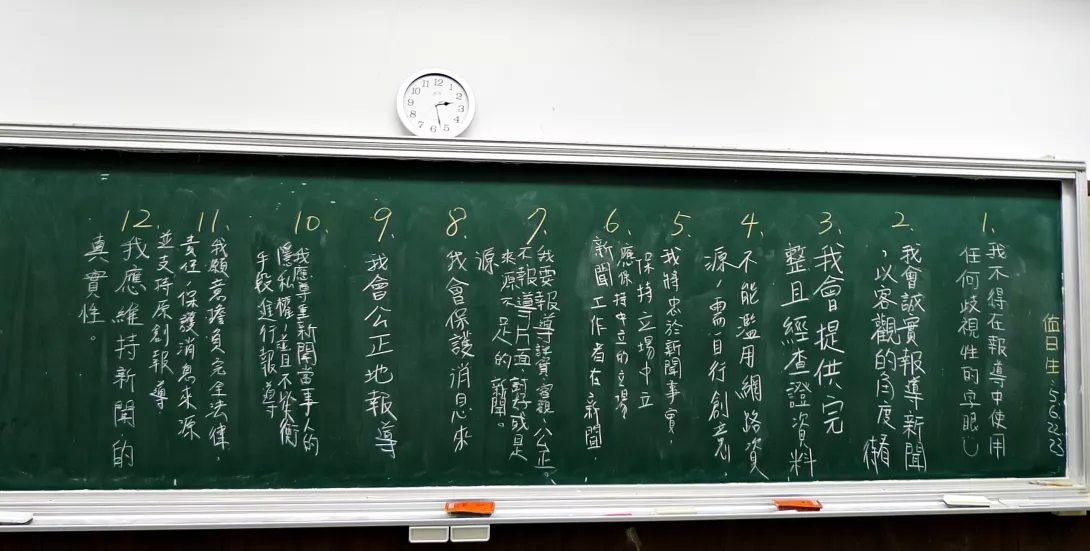 值日生:5.6.22.23
1.
我不得在報導中使用
任何歧視性的字眼
2.
我會誠實報導新聞
,以客觀的角度
3.
我會提供完
整且經查證資料
4.
不能濫用網路資
源,需自行創意,
5.
我將忠於新聞事實,
保持立場中立
6.
應保持中立的立場
新聞工作者在新聞,
7.
我要報導議實 公正
不報導片面 或是
來源不足的新聞。
8.
我會保護消息來
源
9.
我會公正地報導
10.
我應尊重新聞當事人的
隱私權,並且不以
手段進行報導
11.
我願意擔負完全法律,
責任,保護消息來源
並支持原創報導
12.
我應維持新聞的
真實性。
12
1
2
3
4
5
6
7
8
9
10
11